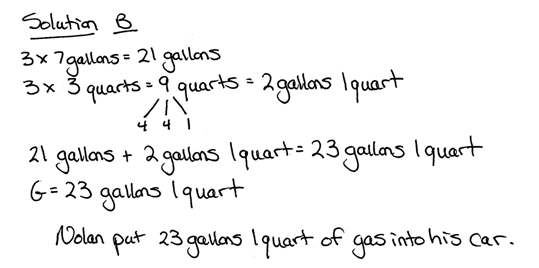 Solution B
3 x 7gallons = 21 gallons
3 x 3 quarts = 9 quarts = 2gallons 1quart
4 4 1
21 gallons + 2 gallons 1quart = 23 gallons 1 quart
G = 23 gallons 1quart
Nolan put 23gallons 1quart of gas into his car.